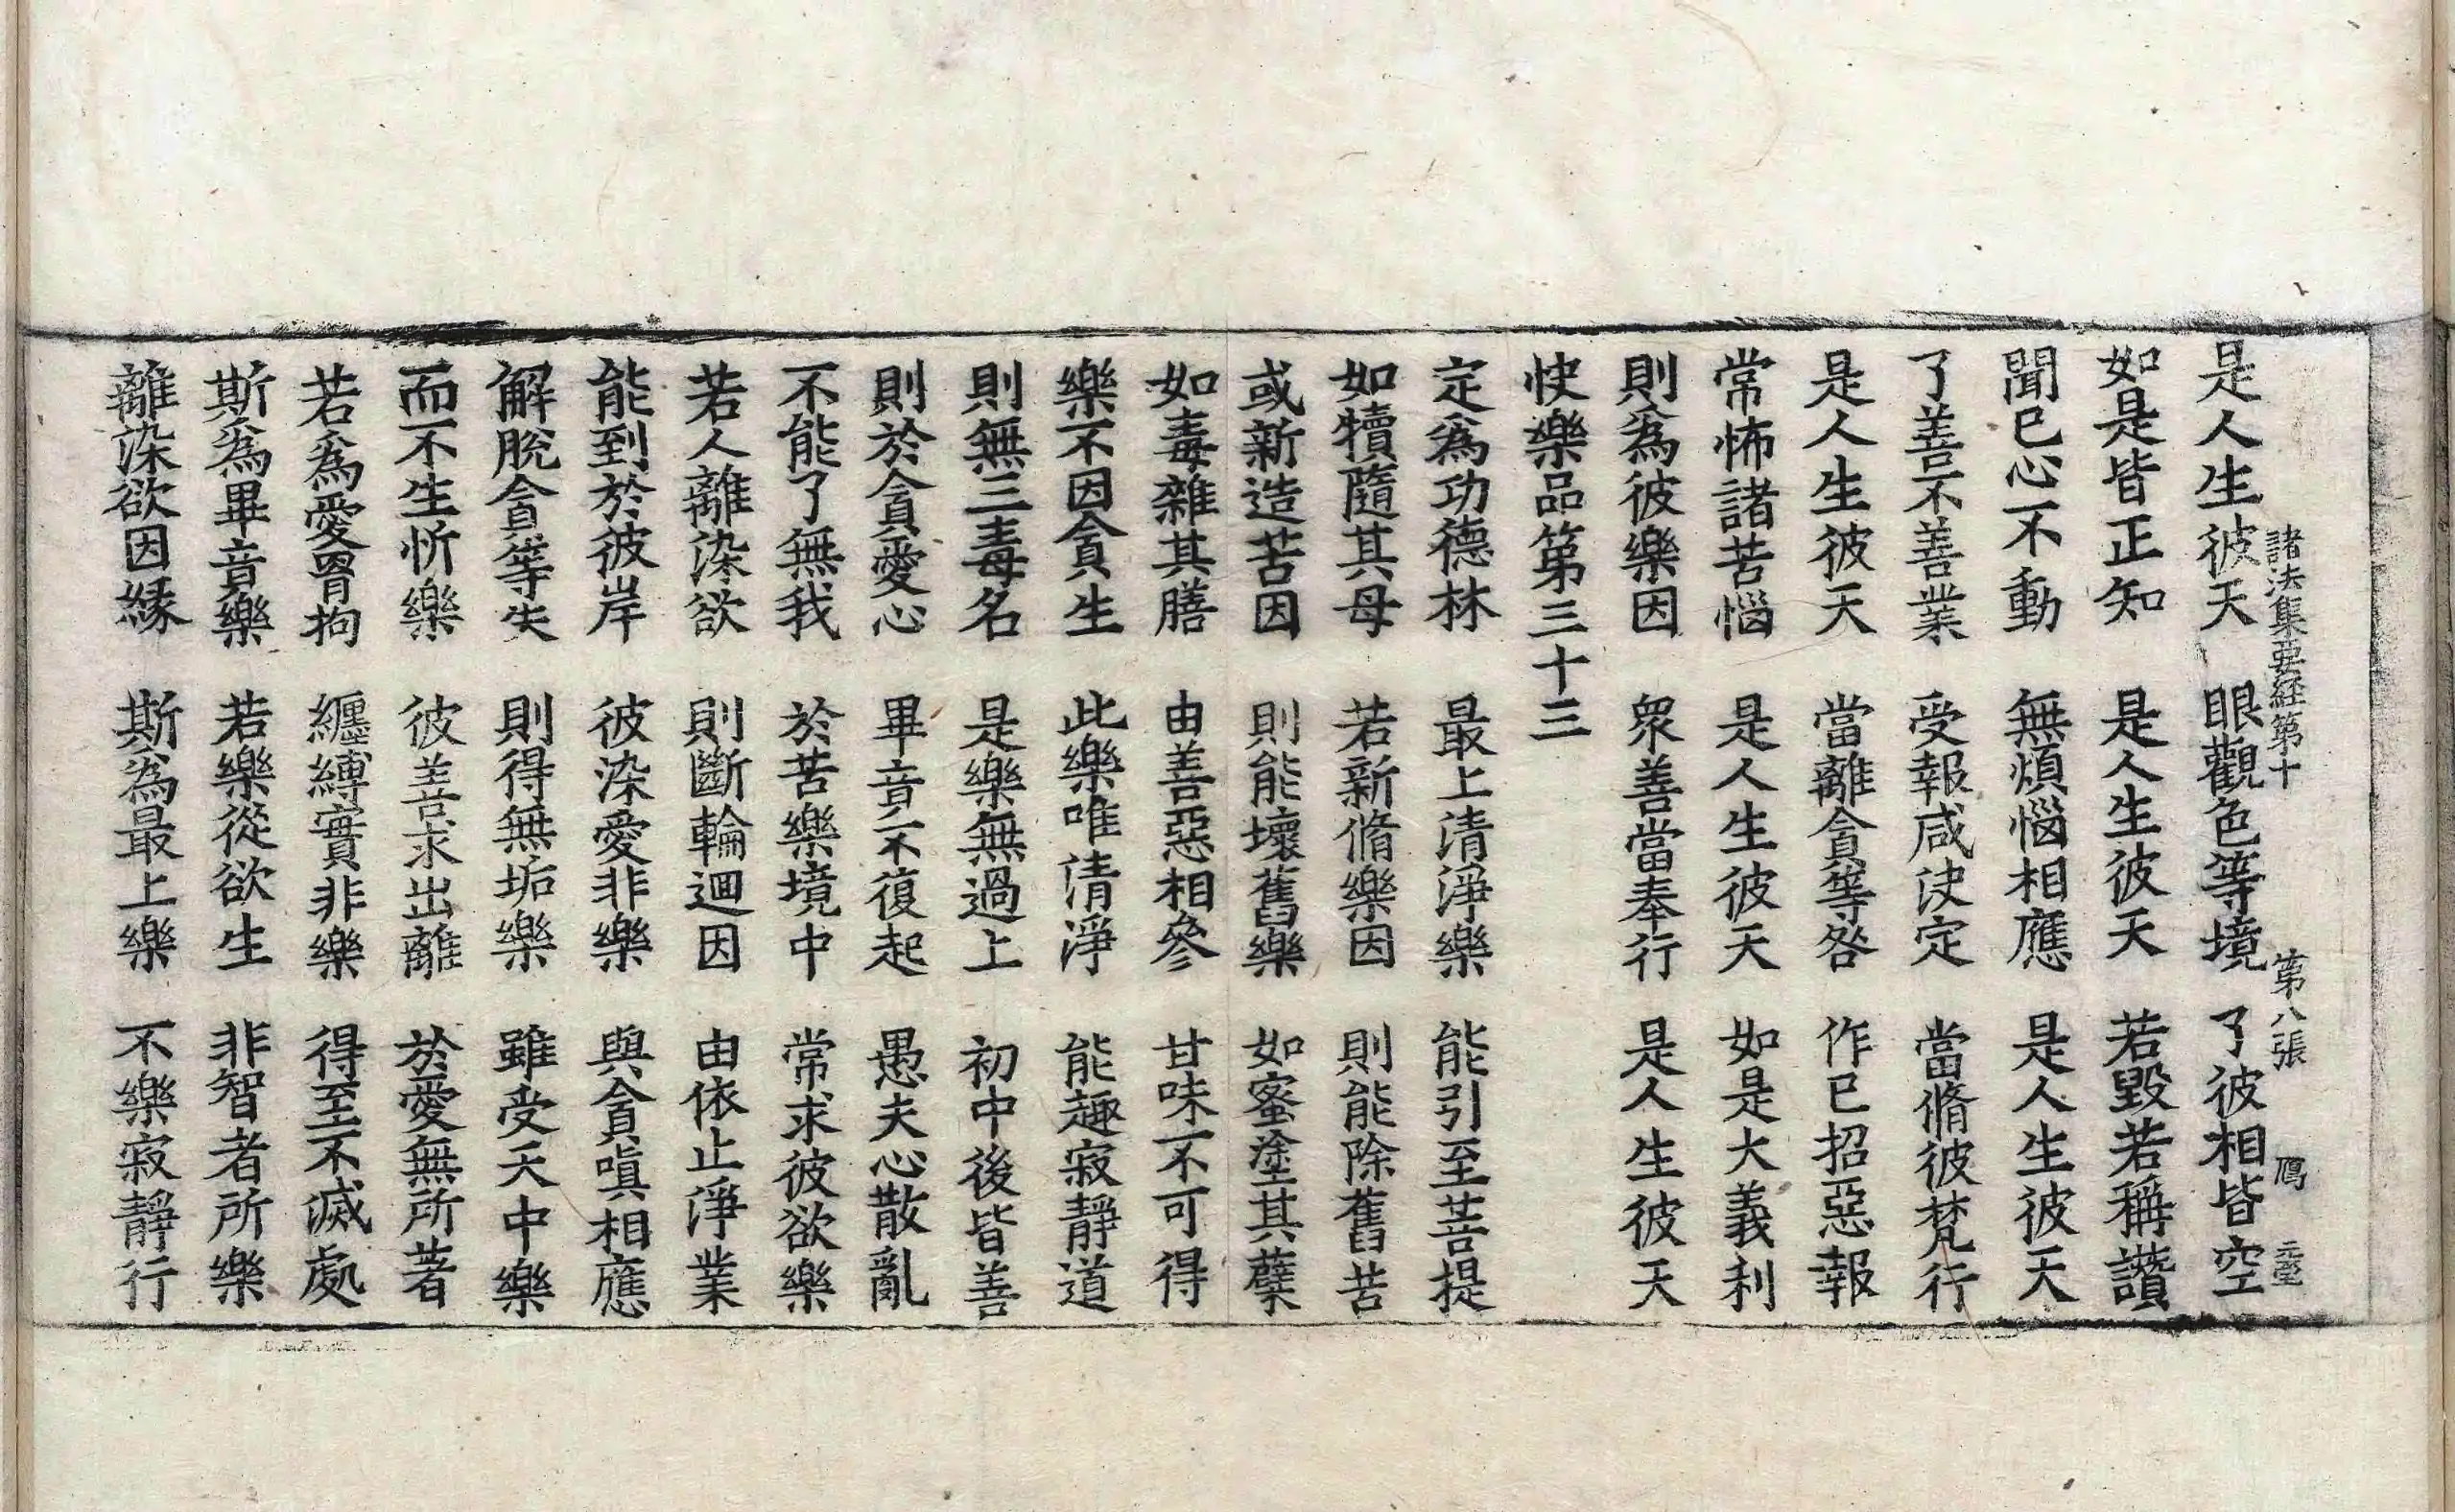 諸法集要経第十 第八張 鴈
是人生彼天 眼觀色等境 了彼相皆空
如是皆正知 是人生彼天 若毀若稱讚
聞已心不動 無煩惱相應 是人生彼天
了善不善業 受報咸決定 當脩彼梵行
是人生彼天 當離貪等咎 作已招惡報
常怖諸苦惱 是人生彼天 如是大義利
則爲彼樂因 衆善當奉行 是人生彼天
快樂品第三十三
定爲功德林 最上清淨樂 能引至菩提
如犢隨其母 若新脩樂因 則能除舊苦
或新造苦因 則能壞舊樂 如蜜塗其蘖
如毒雜其膳 由善惡相參 甘味不可得
樂不因貪生 此樂唯清淨 能趣寂靜道
則無三毒名 是樂無過上 初中後皆善
則於貪愛心 畢竟不復起 愚夫心散亂
不能了無我 於苦樂境中 常求彼欲樂
若人離染欲 則斷輪迴因 由依止淨業
能到於彼岸 彼染愛非樂 與貪嗔相應
解脫貪等失 則得無垢樂 雖受天中樂
而不生忻樂 彼善求出離 於愛無所著
若爲愛罥拘 纏縛實非樂 得至不滅處
斯爲畢竟樂 若樂從欲生 非智者所樂
離染欲因緣 斯爲最上樂 不樂寂靜行